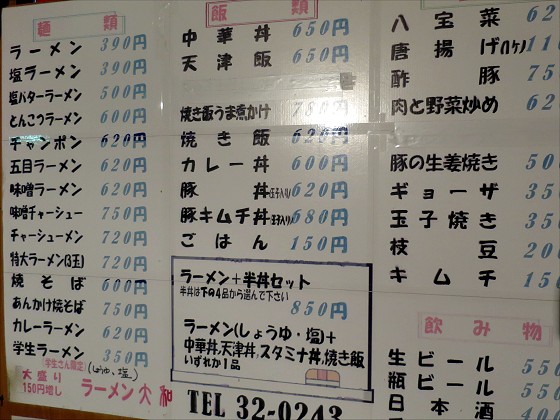 麺類
ラーメン 390円
塩ラーメン 390円
塩バターラーメン 500円
とんこつラーメン 600円
チャンポン 620円
五目ラーメン 620円
味噌ラーメン 620円
味噌チャーシュー 750円
チャーシューメン 720円
特大ラーメン(3玉) 720円
焼きそば 600円
あんかけ焼そば 750円
カレーラーメン 620円
学生ラーメン 350円
学生さん限定 (しょうゆ・塩)
大盛り
150円増し
ラーメン大和
飯類
中華丼 650円
天津飯 650円
焼き飯うま煮かけ 780円
焼き飯 620円
カレー丼 600円
豚丼(玉子入り) 620円
豚キムチ丼(玉子入り) 680円
ごはん 150円
ラーメン+半丼セット
半丼は下の4品から選んで下さい
850円
ラーメン(しょうゆ・塩)+
中華丼,天津丼,スタミナ丼,焼き飯
いずれか1品
TEL 32-0243
八宝菜 62
唐揚げ
酢豚 75
肉と野菜炒め 62
豚の生姜焼き 50
ギョーザ 35
玉子焼き 35
枝豆 200
キムチ 15
飲み物
生ビール 550
瓶ビール 550
日本酒